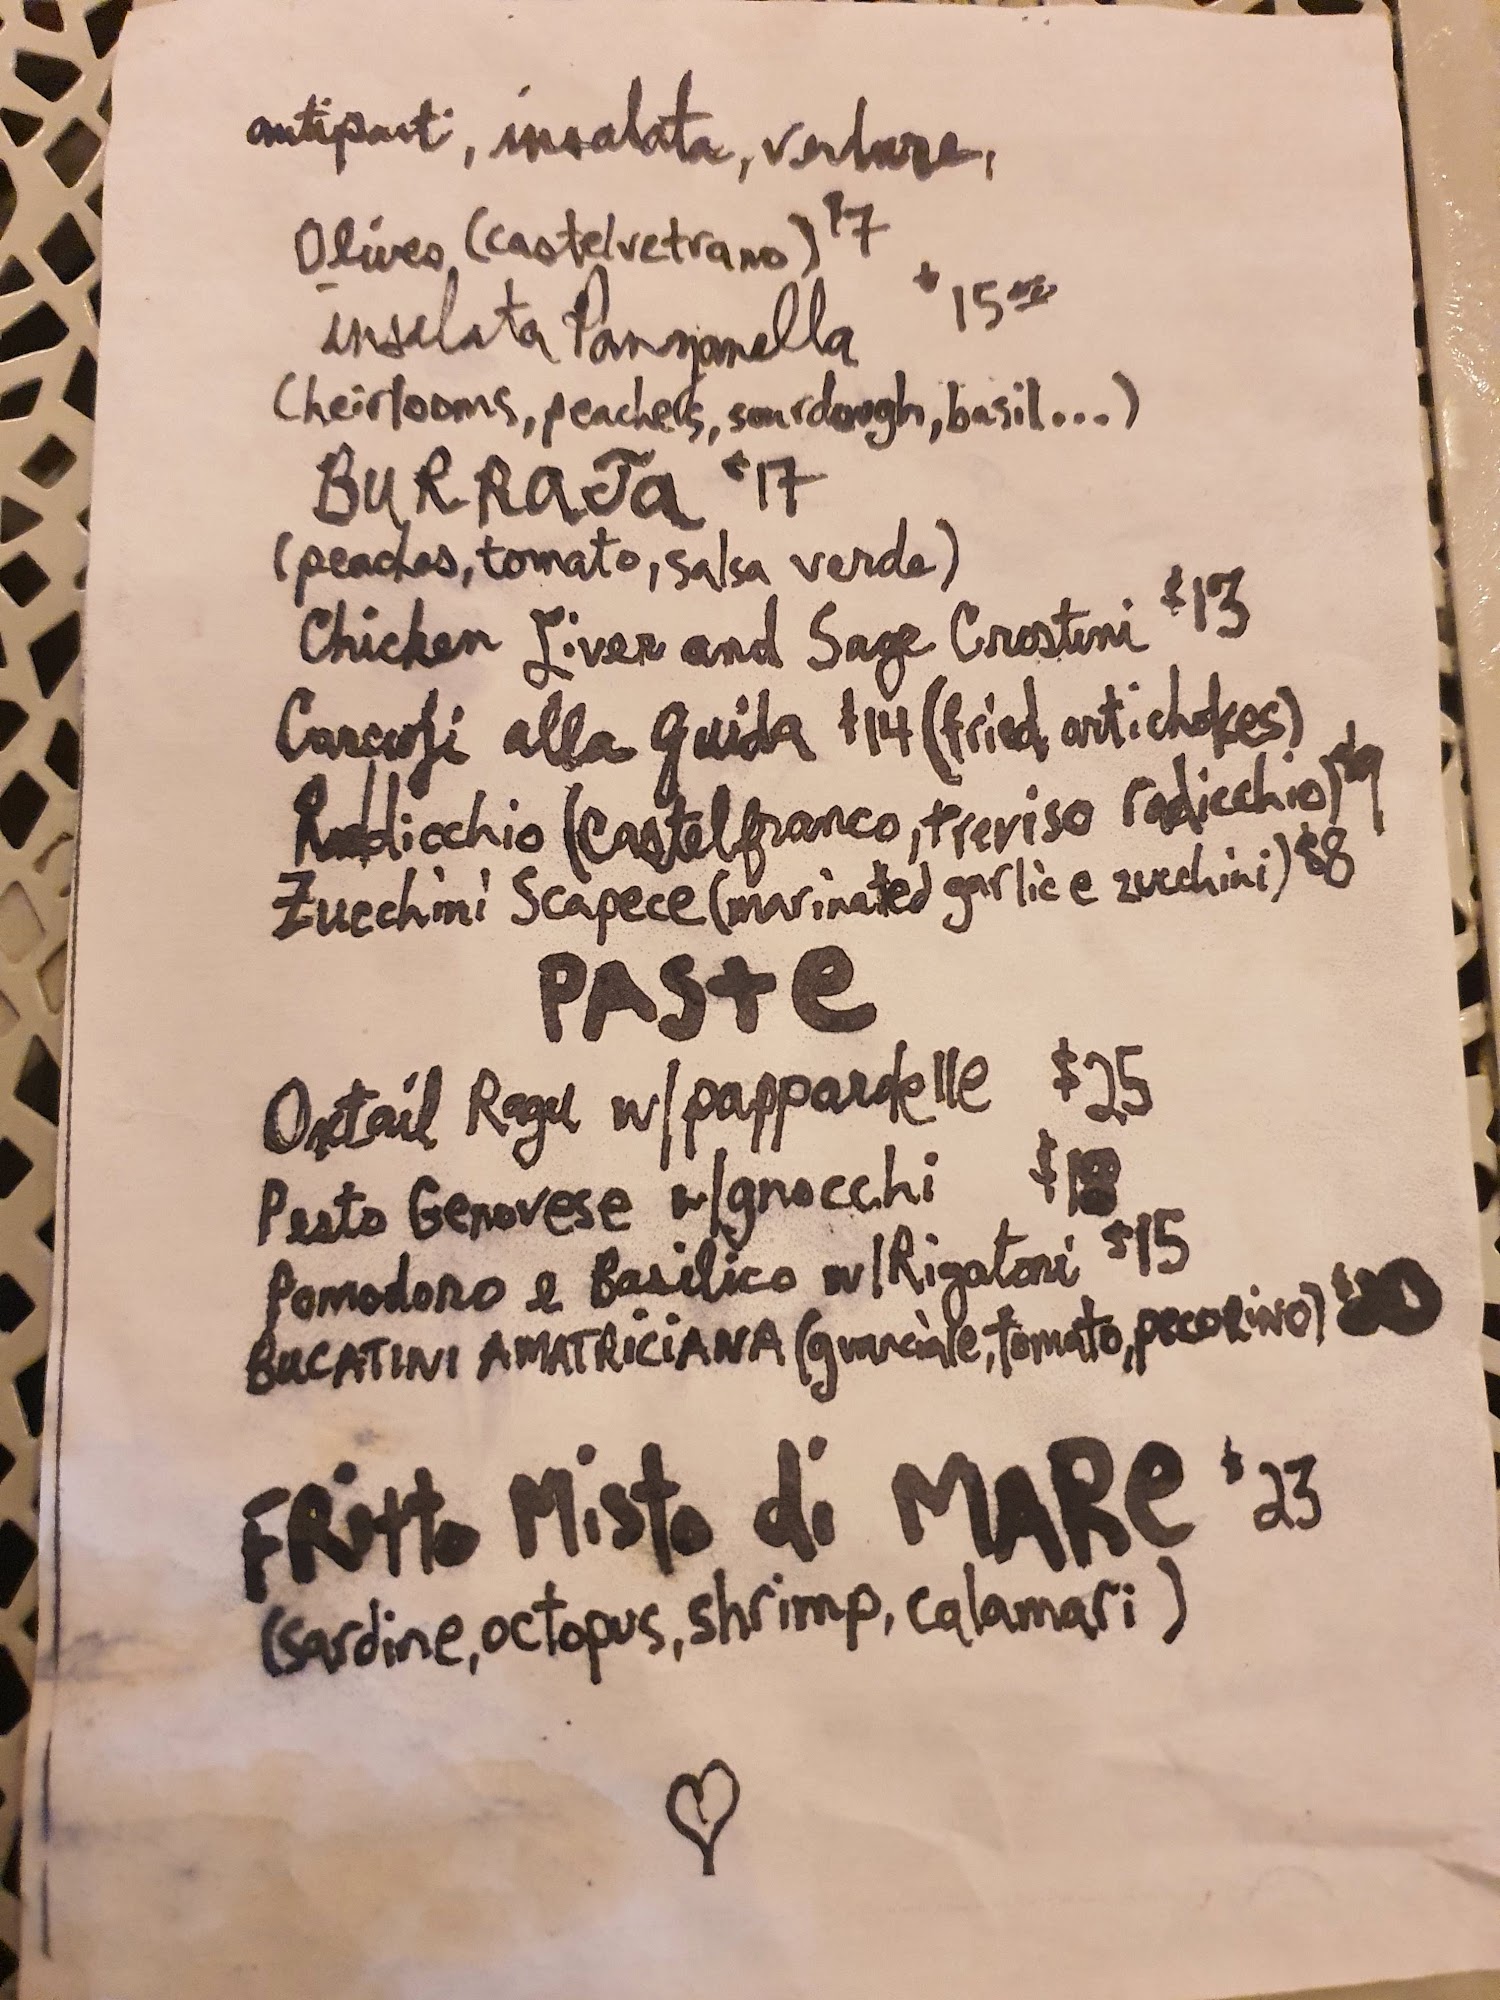 antipasti, insalata, verdure,
Olives (castelvetrano) $7
insalata Panzanella $15.00
(heirlooms, peaches, sourdough, basil...)
BURRATa $17
(peaches, tomato, salsa verde)
Chicken Liver and Sage Crostini $13
Carciofi alla Guida $14 (fried artichokes)
Raddicchio (Castelfranco, treviso radicchio) $9
Zucchini Scapece (marinated garlic e zucchini) $8
PASTe
Oxtail Ragu w/pappardelle $25
Pesto Genovese w/gnocchi $18
Pomodoro e Basilico w/Rigatoni $15
BUCATINI AMATRICIANA (guanciale, tomato, pecorino) $20
FRitto Misto di MARe $23
(sardine, octopus, shrimp, calamari)